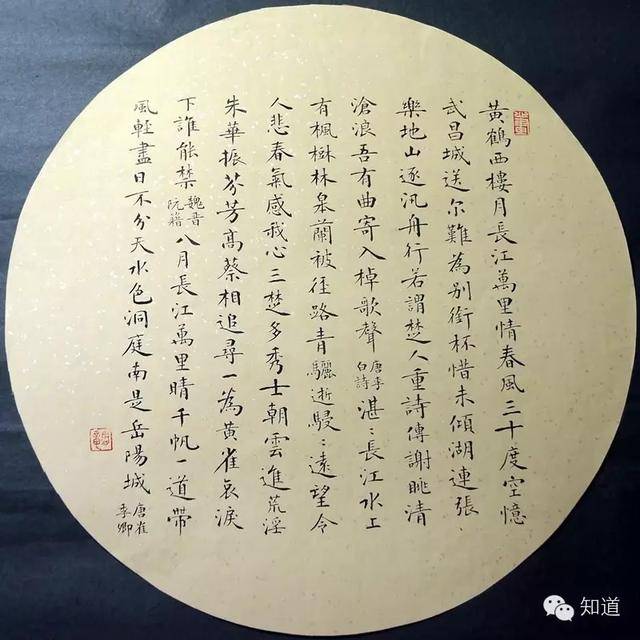 黃鶴西樓月長江萬里情春風三十度空憶
武昌城送尔難為別銜杯惜未傾湖連張
樂地山逐汎舟行若謂楚人重詩傳謝朓清
滄浪吾有曲寄入棹歌聲唐李白詩湛〻長江水上
有楓樹林皋蘭被徑路青驪逝駸〻遠望令
人悲春氣感我心三楚多秀士朝雲進荒淫
朱華振芬芳高蔡相追尋一為黃雀哀淚
下誰能禁魏晋阮籍八月長江萬里晴千帆一道帶
風輕盡日不分天水色洞庭南是岳陽城唐崔季卿
知道